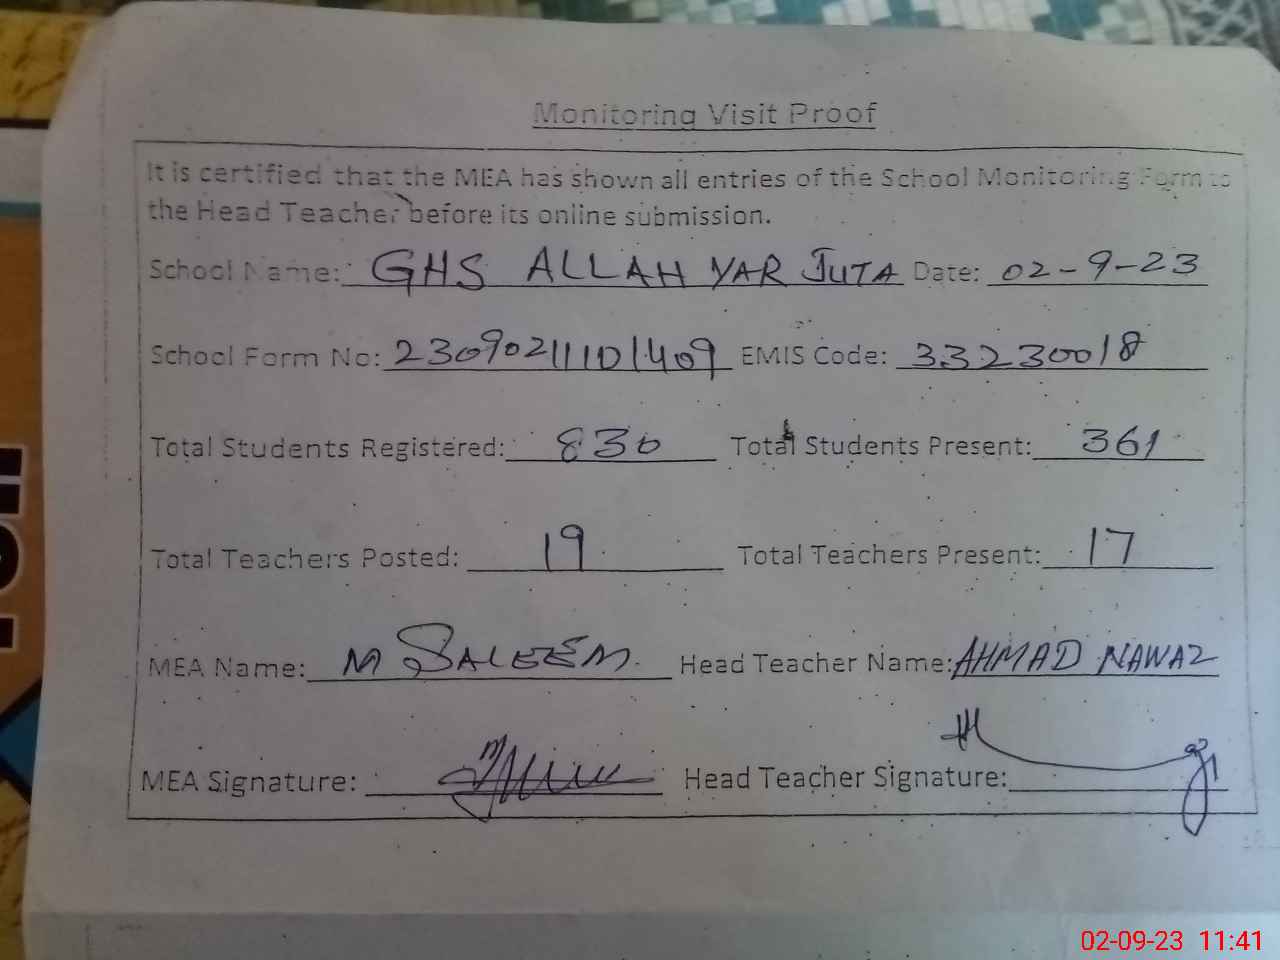 Monitoring Visit Proof
It is certified that the MEA has shown all entries of the School Monitoring Form to
the Head Teacher before its online submission.
School Name: GHS ALLAH YAR JUTA Date: 02-9-23
School Form No: 23090211101409 EMIS Code: 33230018
Total Students Registered: 830 Total Students Present: 361
Total Teachers Posted: 19 Total Teachers Present: 17
MEA Name: M SALEEM Head Teacher Name: AHMAD NAWAZ
MEA Signature: Head Teacher Signature:
02-09-23 11:41